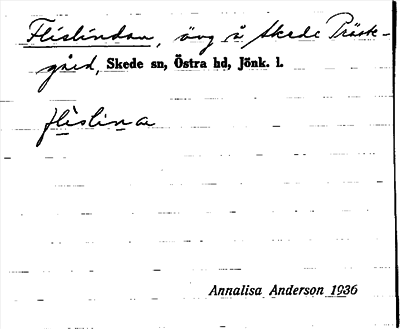 Flislindan, äng å Skede Präst-
gård, Skede sn, Östra hd, Jönk. l.
flislina
Annalisa Anderson 1936